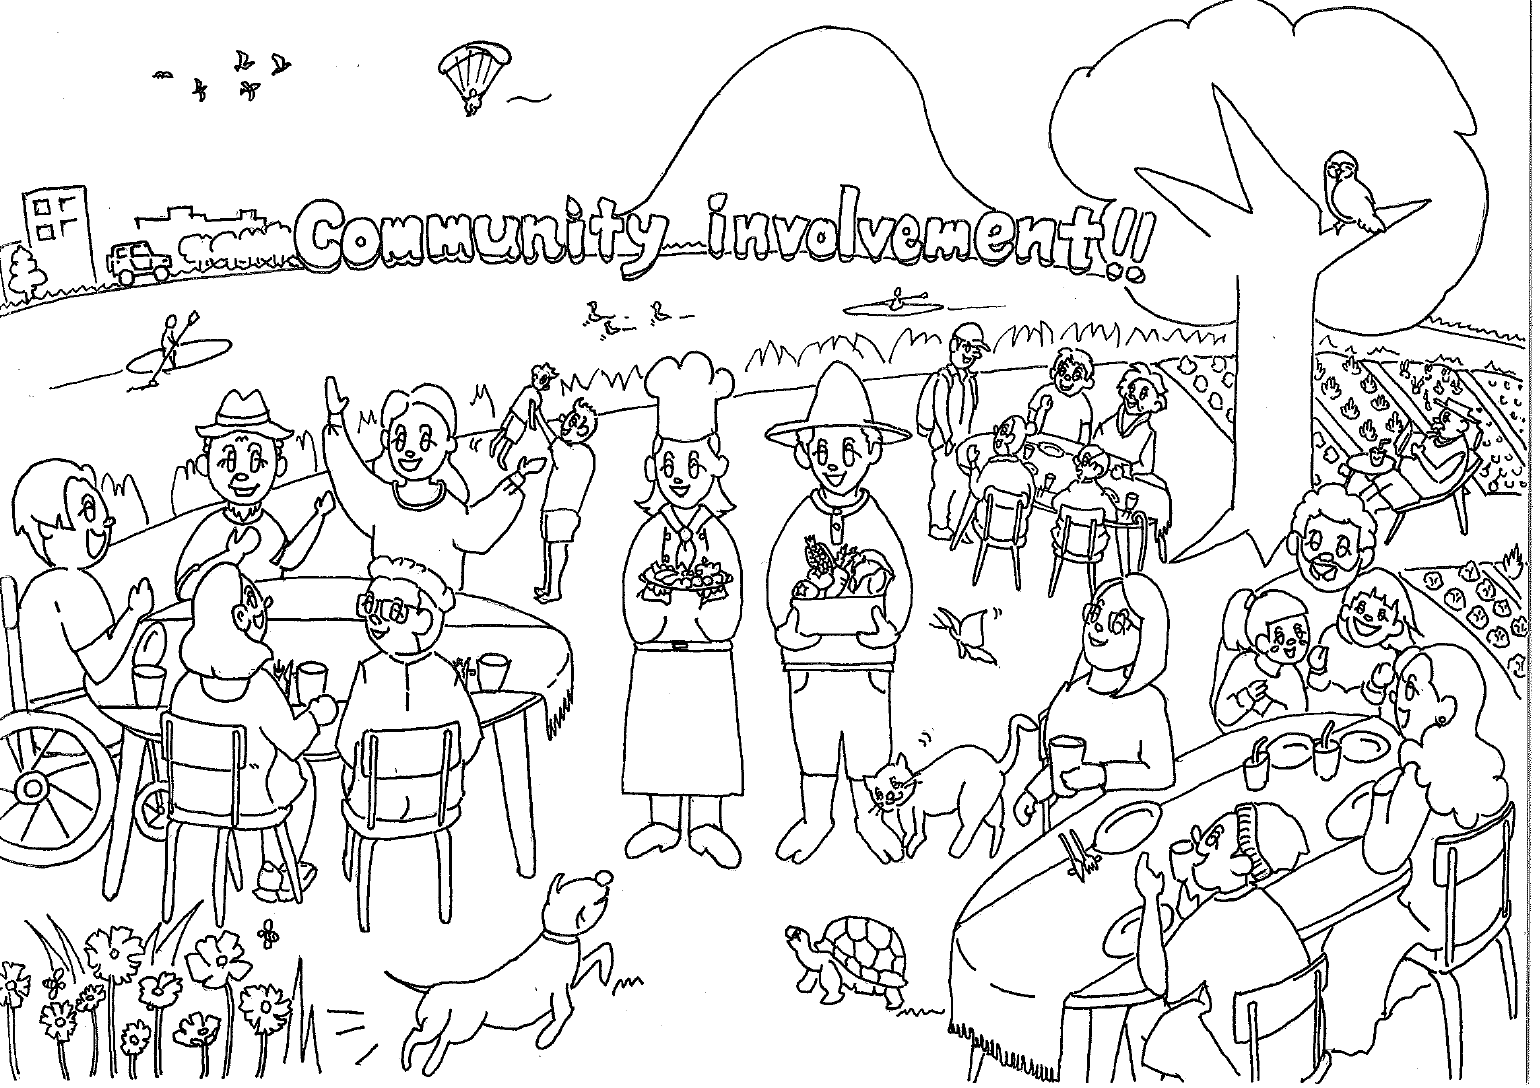 Community involvement!!